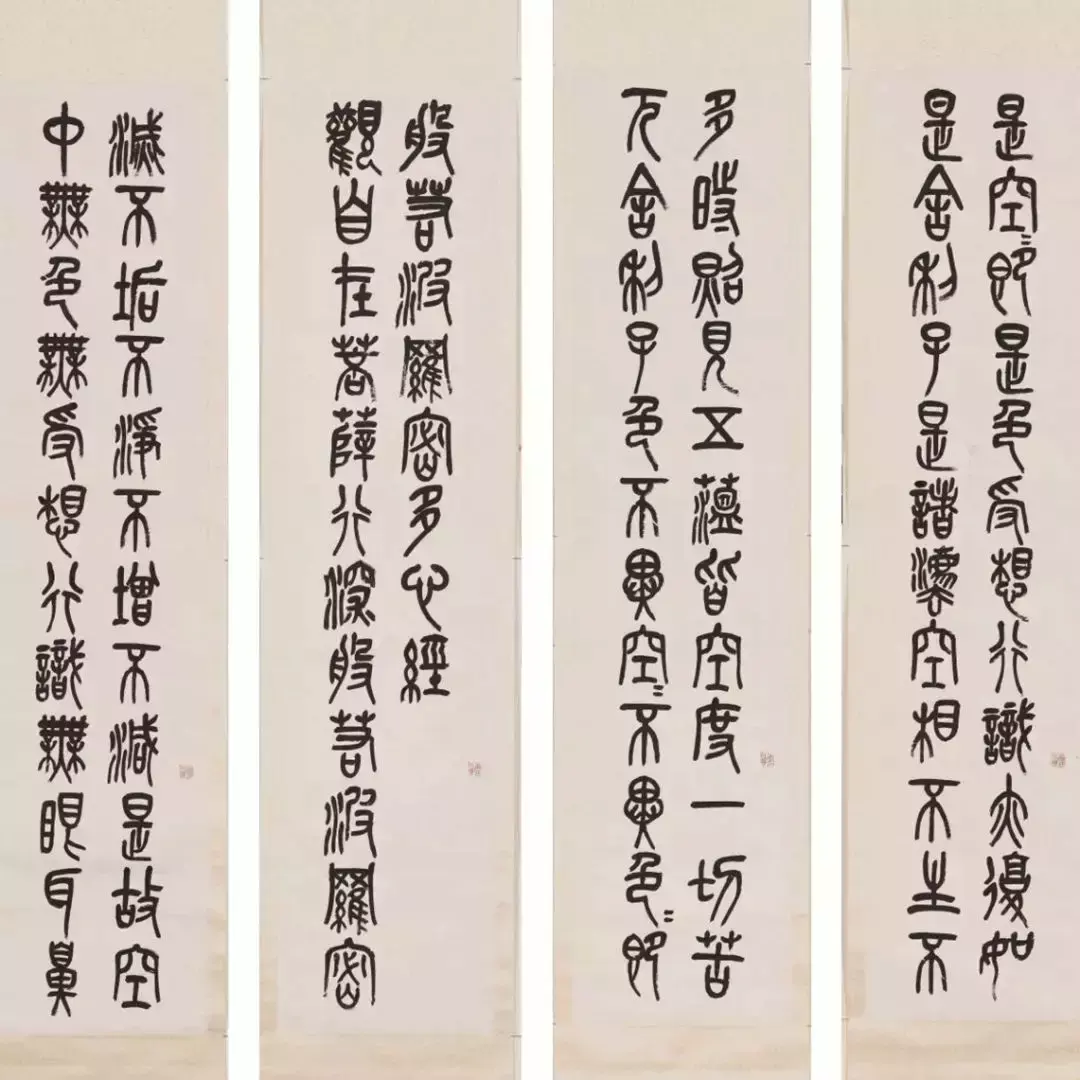 般若波羅密多心經
觀自在菩薛行深般若波羅密
多時照見五薀皆空度一切苦
厄舍利子色不異空〻不異色〻即
是空〻即是色受想行識亦復如
是舍利子是諸灋空相不生不
滅不垢不淨不增不減是故空
中無色無受想行識無眼耳鼻